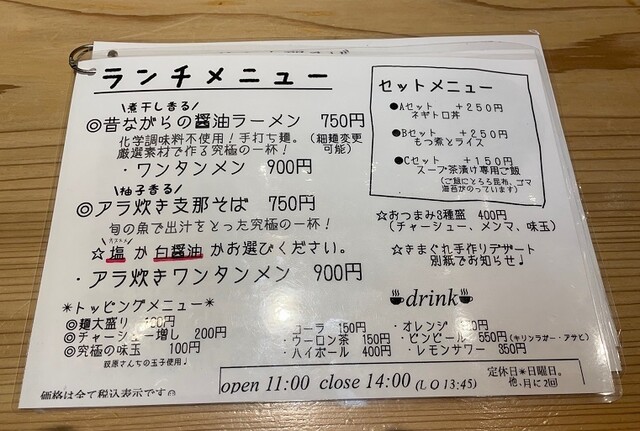 ランチメニュー
\煮干し香る/
◎昔ながらの醤油ラーメン 750円
化学調味料不使用！手打ち麺。(細麺変更可能)
厳選素材で作る究極の一杯！
・ワンタンメン 900円
\柚子香る/
◎アラ炊き支那そば 750円
旬の魚で出汁をとった究極の一杯！
☆塩か白醤油がお選びください。
・アラ炊きワンタンメン 900円
＊トッピングメニュー＊
◎麺大盛り 00円
◎チャーシュー増し 200円
◎究極の味玉 100円
荻原さんちの玉子使用♪
価格は全て税込表示です☺
セットメニュー
●Aセット +250円
ネギトロ丼
●Bセット +250円
もつ煮とライス
●Cセット +150円
スープ茶漬け専用ご飯
(ご飯にとろろ昆布、ゴマ
海苔がのっています)
☆おつまみ3種盛 400円
(チャーシュー、メンマ、味玉)
☆きまぐれ手作りデザート
別紙でお知らせ♪
drink
・コーラ 150円
・ウーロン茶 150円
・ハイボール 400円
・オレンジ 50円
・ビンビール 550円(キリンラガー・アサヒ)
・レモンサワー 350円
open 11:00 close 14:00 (L O 13:45)
定休日＊日曜日。
他、月に2回